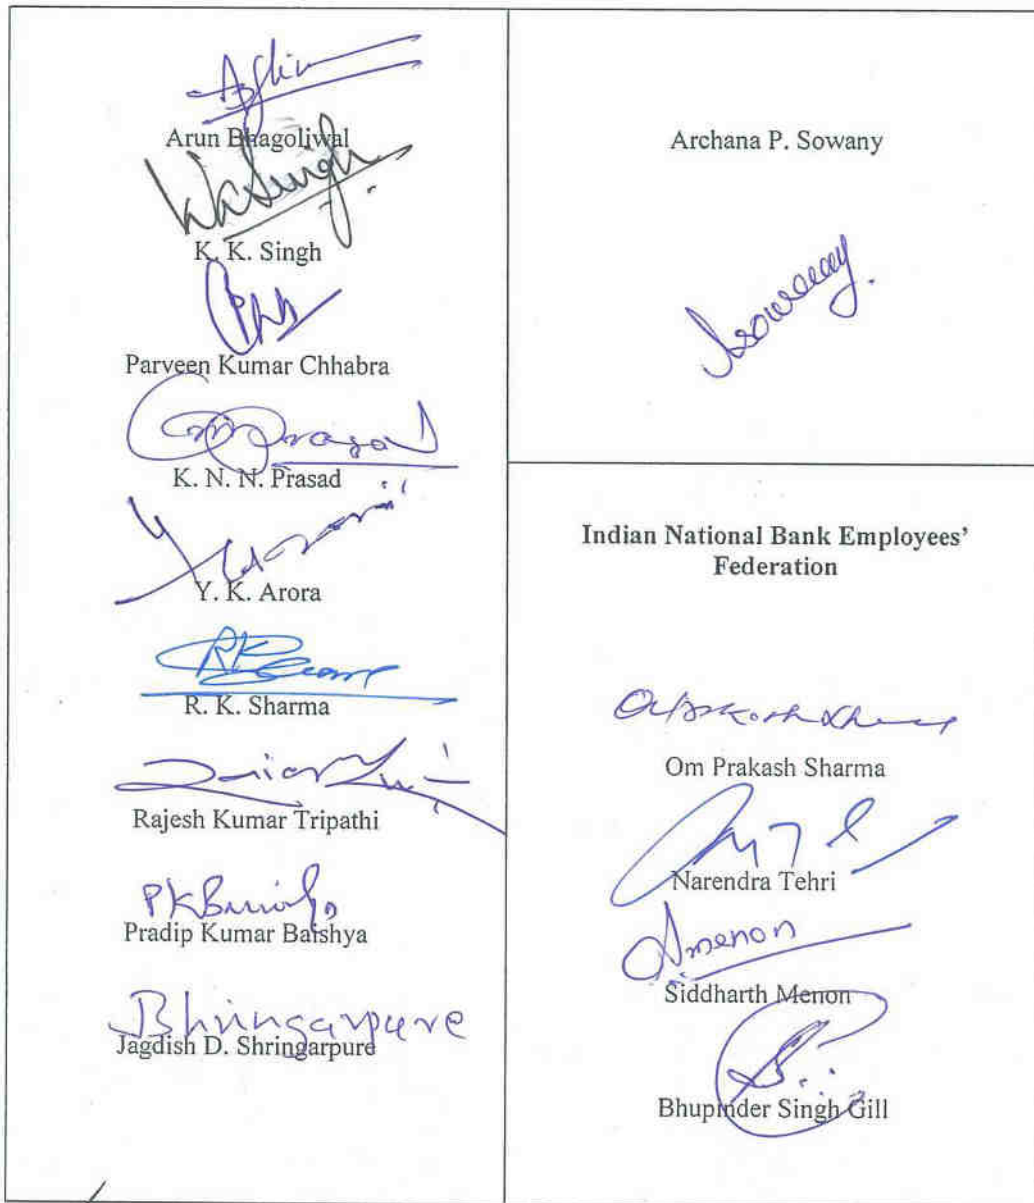 Arun Bhagoliwal
KKSingh
K. K. Singh
Parveen Kumar Chhabra
Prasad
K. N. N. Prasad
Y. K. Arora
RK
R. K. Sharma
Rajesh Kumar Tripathi
PK
Pradip Kumar Baishya
Shringarpure
Jagdish D. Shringarpure
Archana P. Sowany
Asowany.
Indian National Bank Employees'
Federation
Om Prakash Sharma
Narendra Tehri
Smenon
Siddharth Menon
Bhupinder Singh Gill